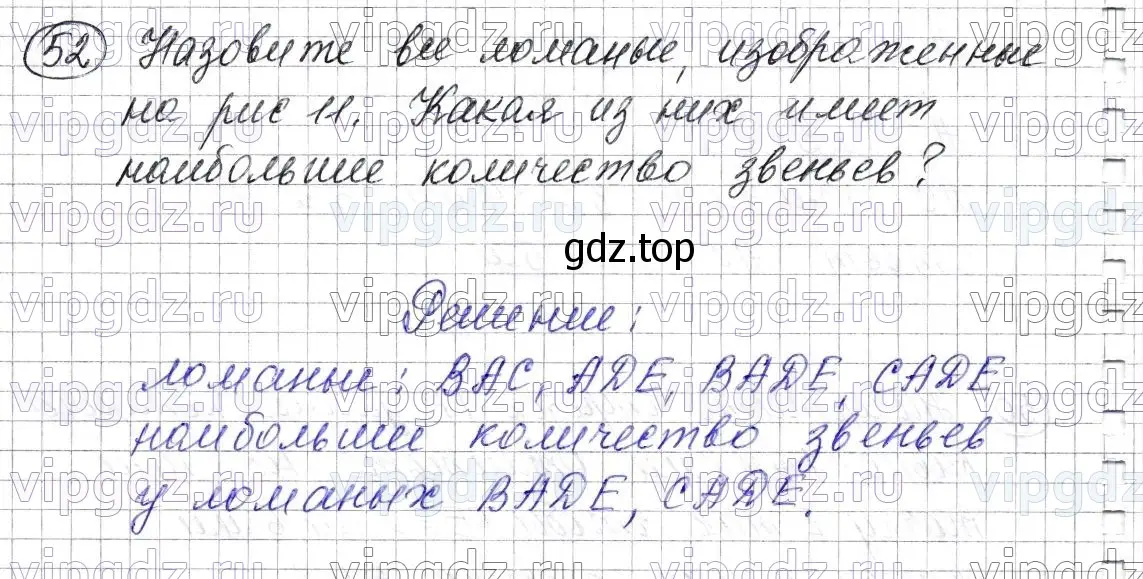 52 Назовите все ломаные, изображенные
на рис 11. Какая из них имеет
наибольшее количество звеньев?
gdz.top
Решение:
ломаные: ВАС, ADE, BADE, CADE
наибольшее количество звеньев
у ломаных BADE, CADE.
vipgdz.ru